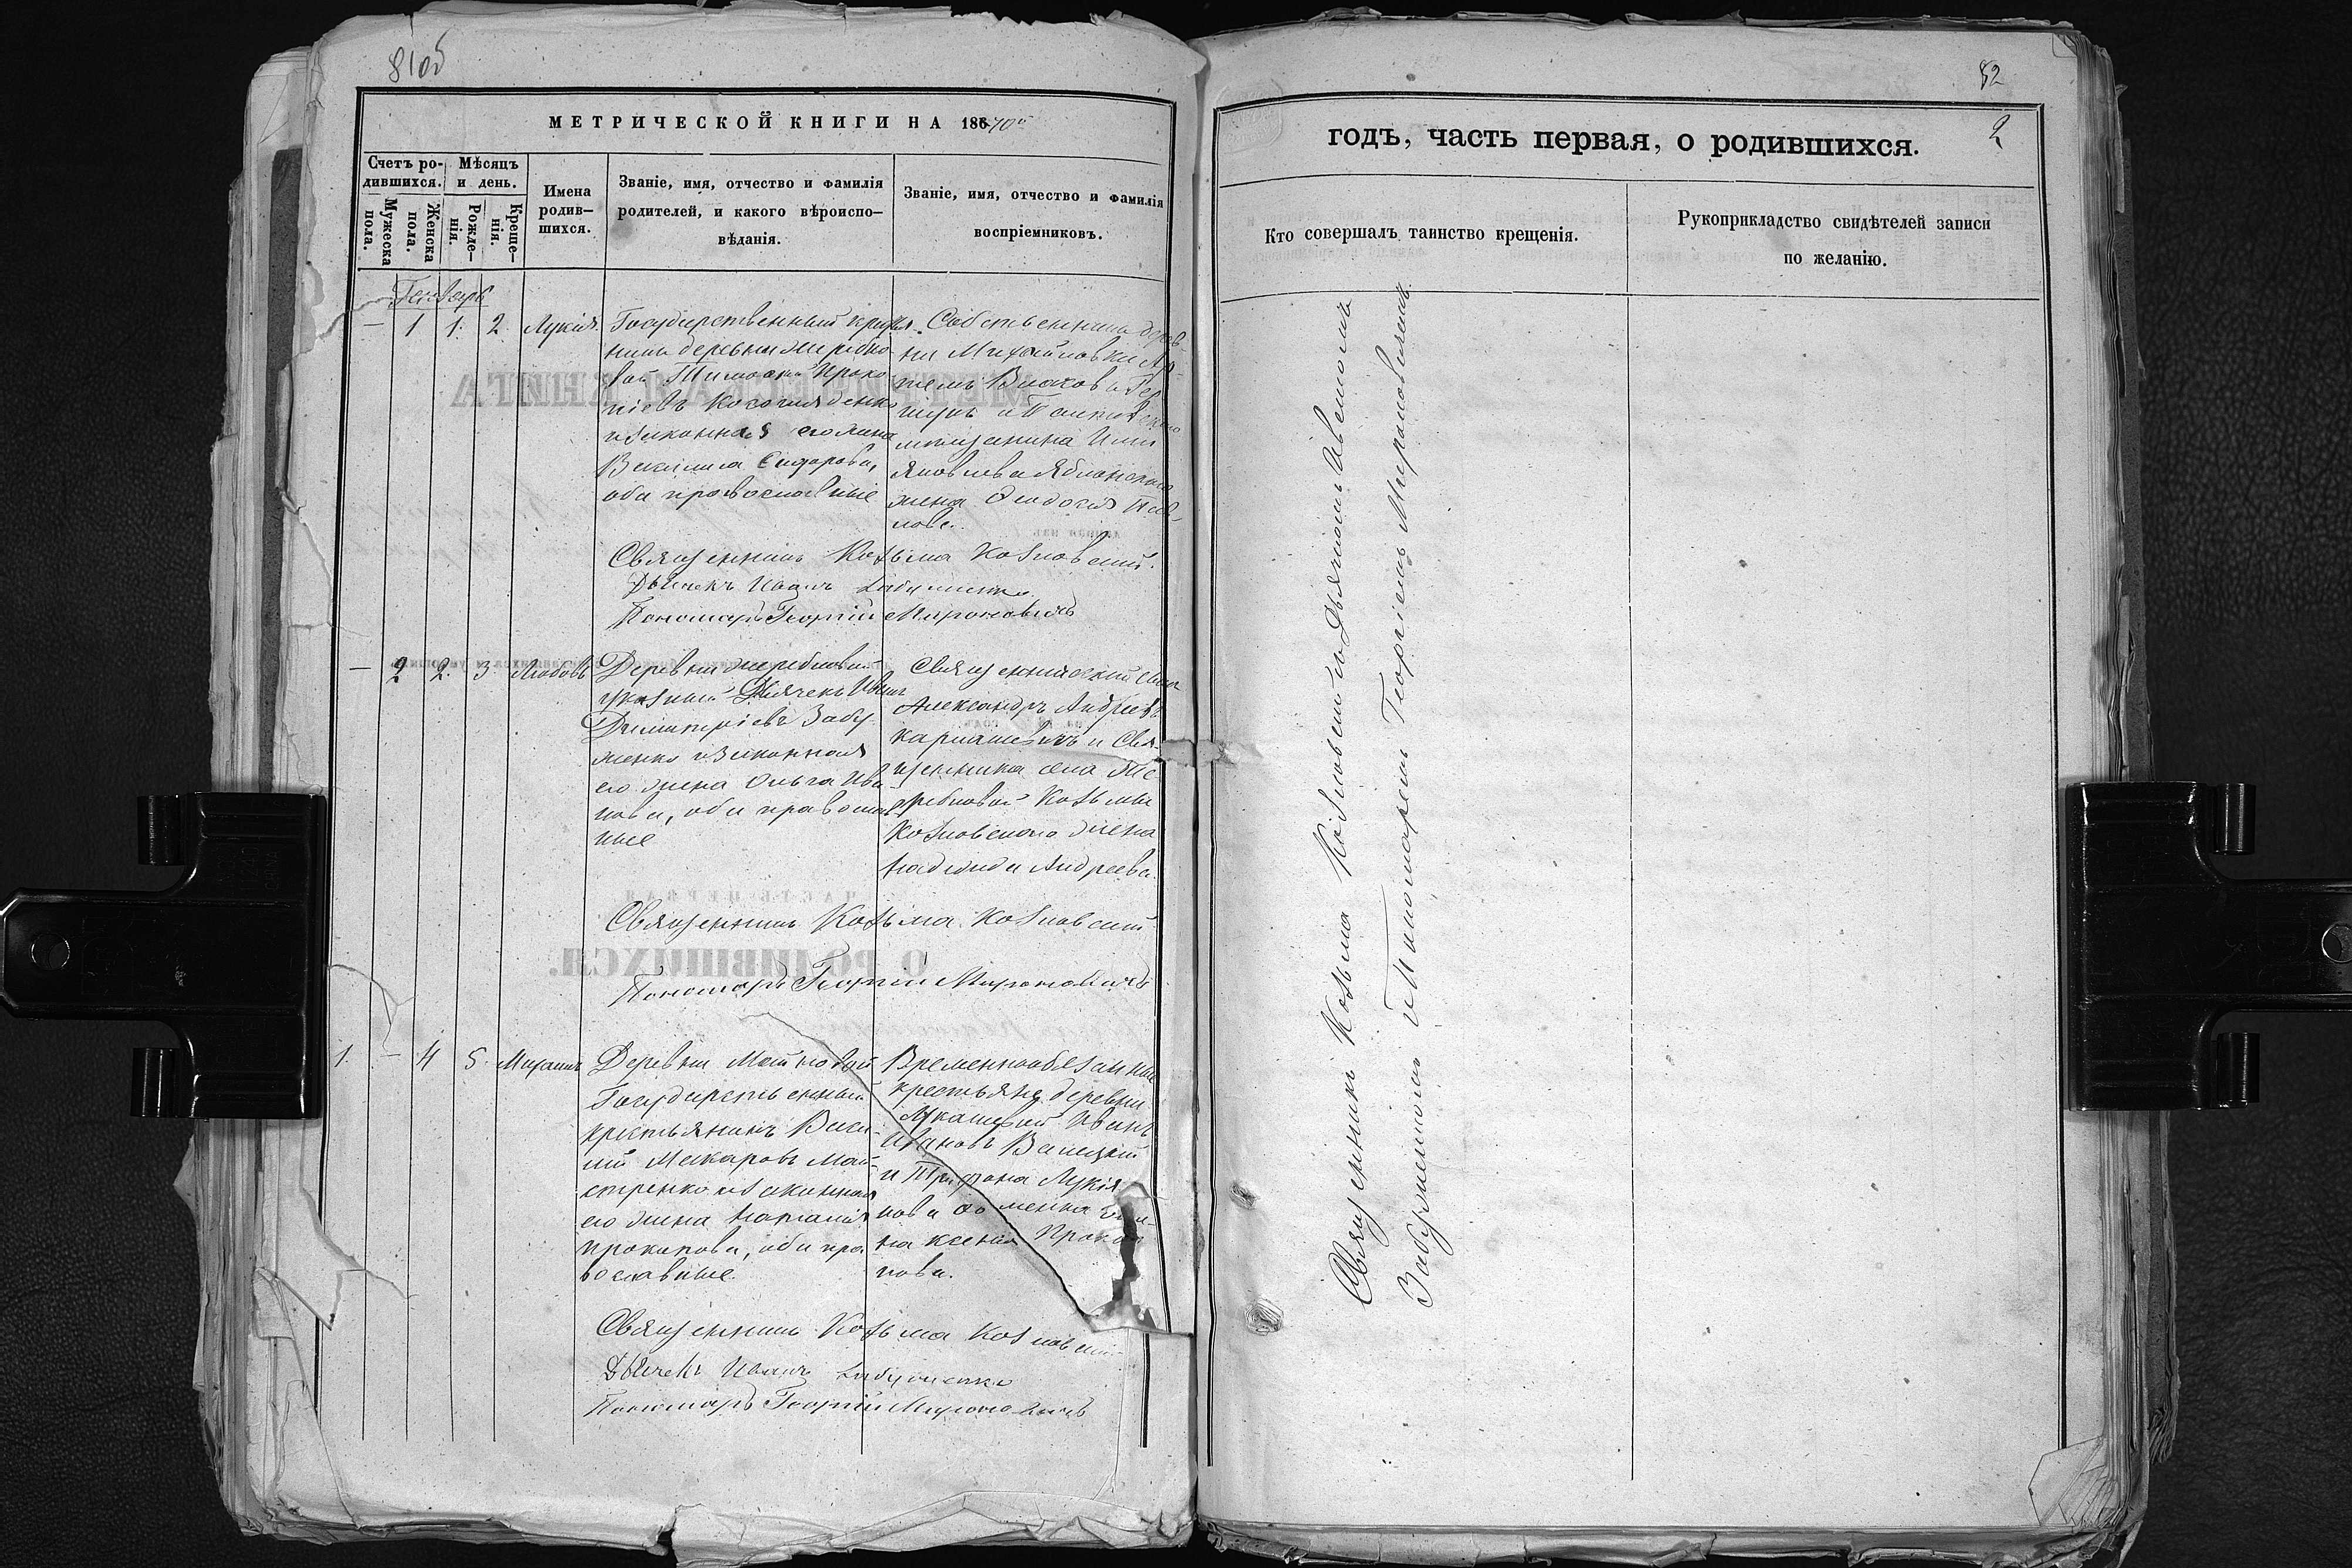 81об
МЕТРИЧЕСКОЙ КНИГИ НА 1870й
Счетъ ро-
дившихся.
Мужеска
пола.
Женска
пола.
Мѣсяцъ
и день.
Рожде-
нія.
Креще-
нія.
Имена
родив-
шихся.
Званіе, имя, отчество и фамилія
родителей, и какого вѣроиспо-
вѣданія.
Званіе, имя, отчество и фамилія
воспріемниковъ.
Генварь
— 1 1. 2. Лукія.
Государственный крестья
нинъ деревни
Тимофей Проко
піевъ
и законная его жена
Василиса Сидорова,
оба православные
Собственникъ дерев-
ни Михайловки Ар-
темъ Власовъ
и
мѣщанина
Яковлева Яблонского
жена Феодосія Пав-
лова.
Священникъ Козьма Козловский.
Дьячекъ Иванъ Забуженко
Пономарь Георгій Мироновичъ
— 2 2. 3. Любовь
Деревни Жеребновой
указный Дьячекъ Иванъ
Димитріевъ Забу
женко и законная
его жена Ольга Ива
нова, оба православ
ные
Священнический сынъ
Александръ Андреевъ
и Свя-
щенника села Же
ребновой Козьмы
Козловского жена
Надежда Андреева.
Священникъ Козьма Козловский
Пономарь Георгій Мироновичъ
1. — 4 5. Михаилъ
Деревни
Государственный
крестьянинъ Васи-
лій Макаровъ Май-
стренко и законная
его жена Наталія
Прокопова, оба пра
вославные.
Временнообязанные
крестьяне деревни
Лукашевой Иванъ
Ивановъ
и Трифона Лукія
нова жe-
на Ксенія Проко
пова.
Священникъ Козьма Козловский
Дьячекъ Иванъ Забуженко
Пономарь Георгій Мироновичъ
82
2
годъ, часть первая, о родившихся.
Кто совершалъ таинство крещенія.
Рукоприкладство свидѣтелей записи
по желанію.
Священникъ Козьма Козловский съ Дьячкомъ Иваномъ
Забуженкомъ и Пономаремъ Георгіемъ Мироновичемъ.